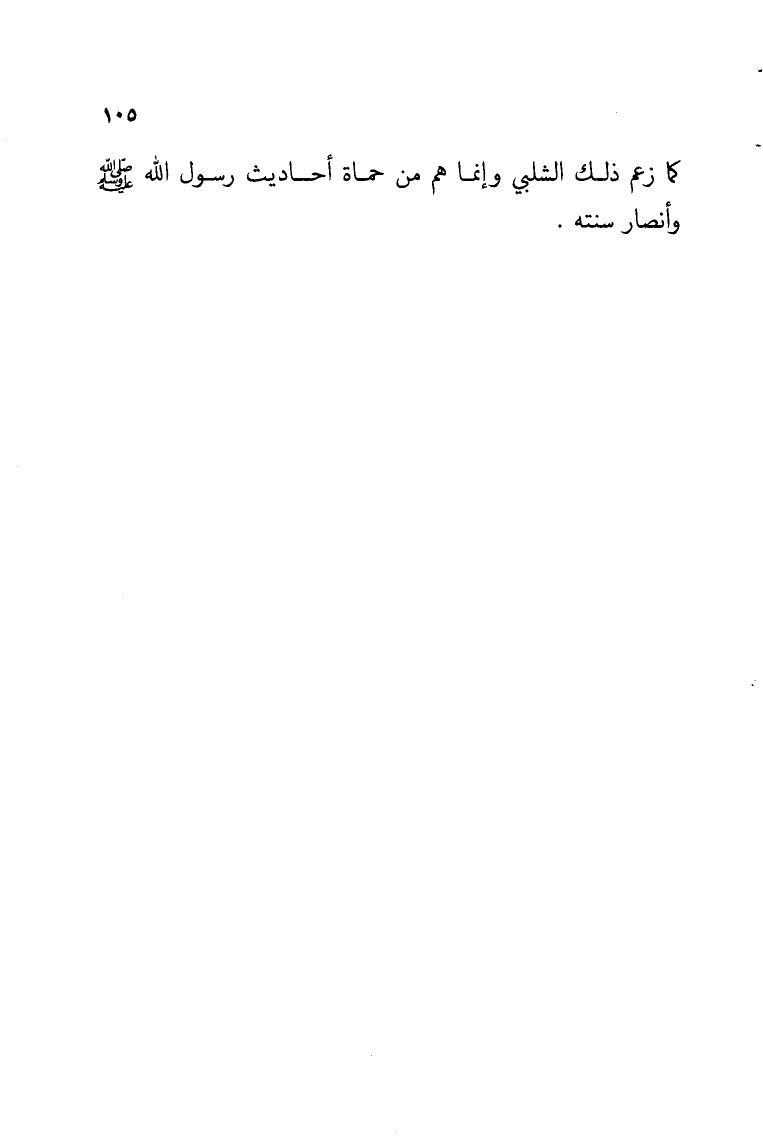 ١٠٥
كما زعم ذلـك الشلبي وإنمـا هم من حمـاة أحـــاديث رسـول الله ﷺ
وأنصار سنته .